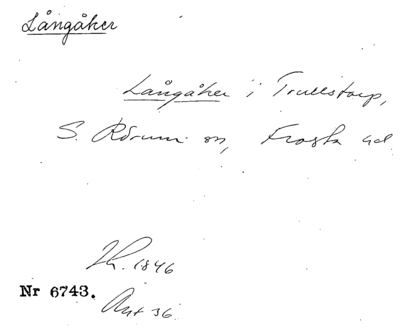 Långåker
Långåker i Trullstorp,
S. Rörum sn, Frosta hd
1846
Nr 6743.
Ant 36